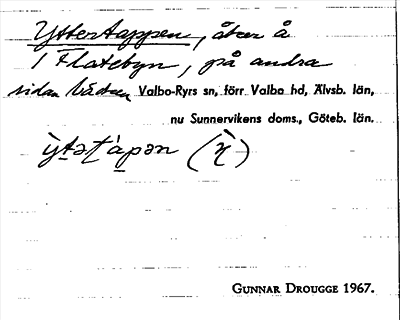 Yttertappen, åker å
1 Flatebyn, på andra
sidan Vådsen Valbo-Ryrs sn, förr Valbo hd, Älvsb. län,
nu Sunnervikens doms., Göteb. län.
ỳtət á̱pən (ỳ)
GUNNAR DROUGGE 1967.